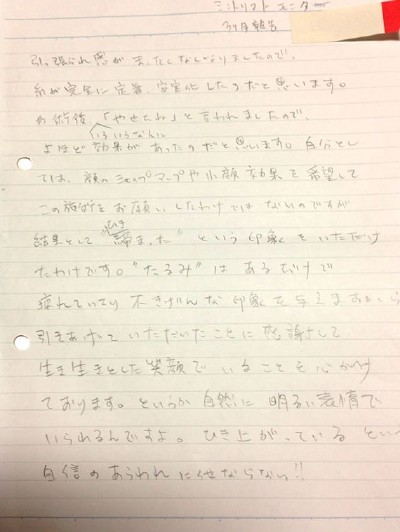 ミントリフト モニター
3ヶ月報告
引っ張られ感がまったくなくなりましたので、
糸が完全に定着、安定化したのだと思います。
の術後、「やせたね」と言われましたので、
いろいろな人に
よほど効果があったのだと思います。自分とし
ては、顔のシェイプアップや小顔効果を希望して
この施術をお願いしたわけではないのですが
結果として"引き締まった"という印象をいただけ
たわけです。"たるみ"はあるだけで
疲れていたり不きげんな印象を与えますから
引きあげていただいたことに感謝して
生き生きとした笑顔でいることを心がけ
ております。というか自然に明るい表情で
いられるんですよ。ひき上がっているとい
自信のあらわれに他ならない!!